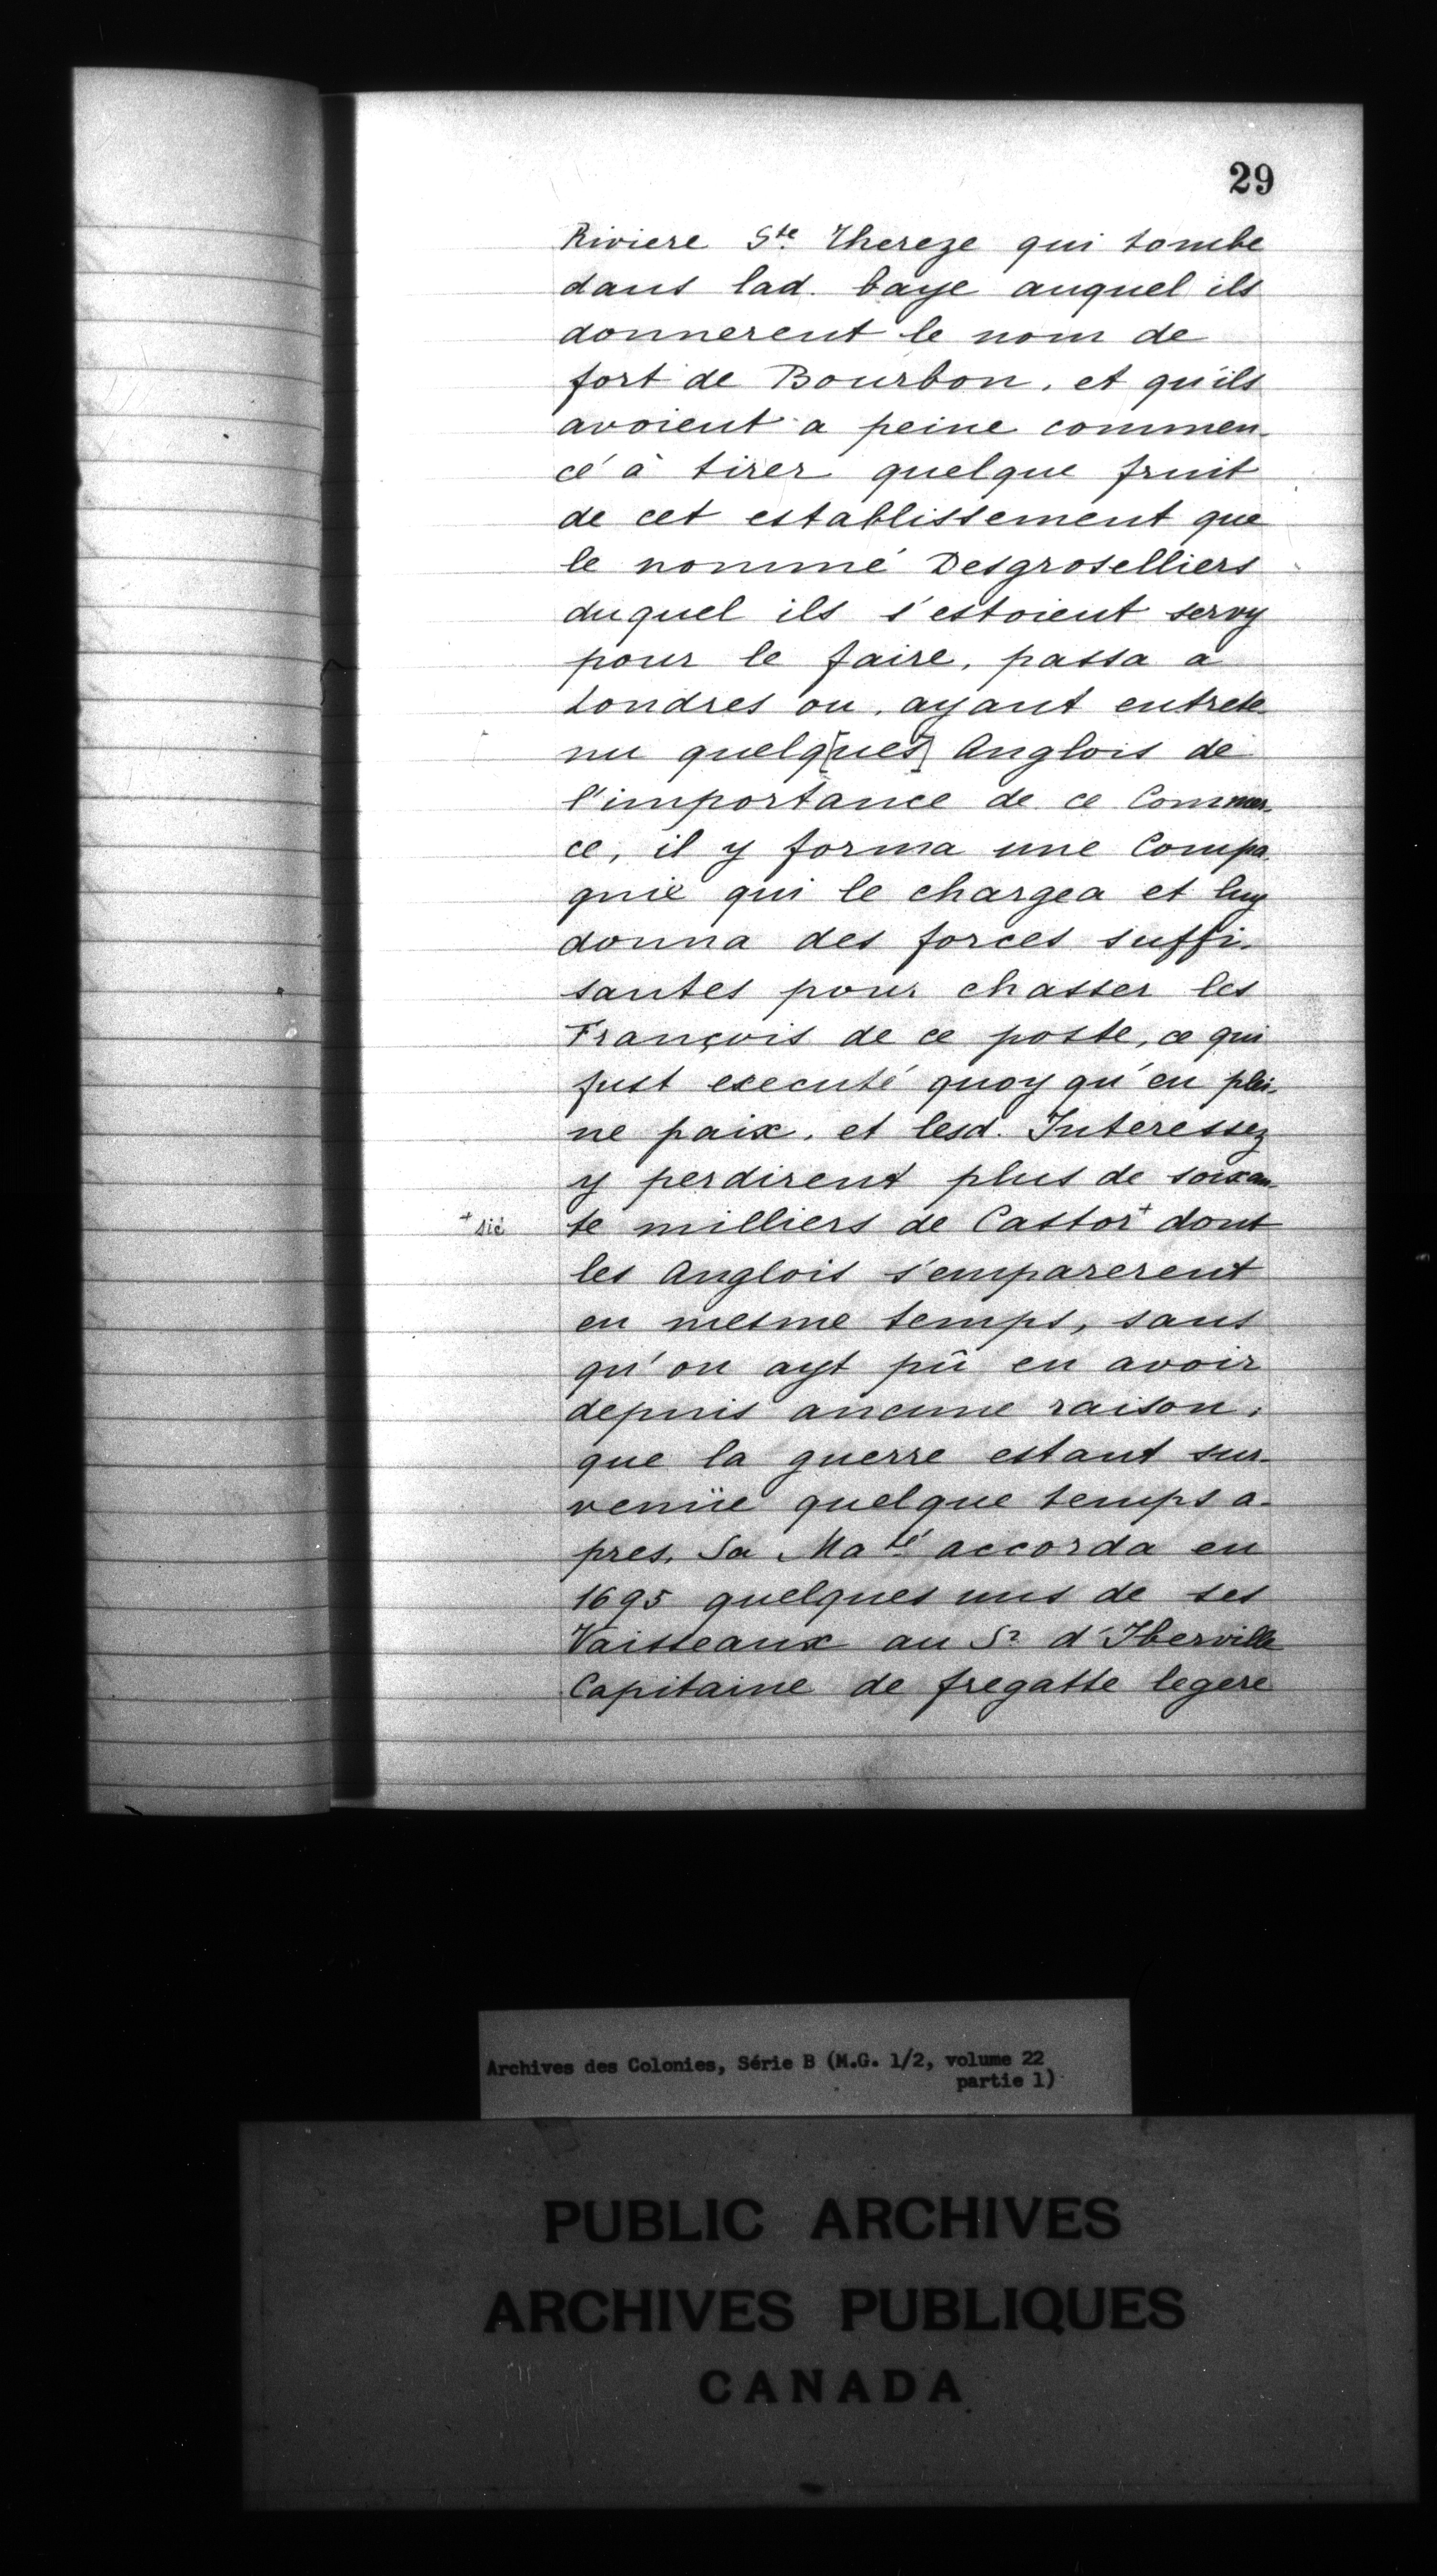 29
Riviere Ste. Thereze qui tombe
dans lad. baye auquel ils
donnerent le nom de
fort de Bourbon, et qu'ils
avoient a peine commen-
cé à tirer quelque fruit
de cet establissement que
le nommé Desgroselliers
duquel ils s'estoient servy
pour le faire, passa a
Londres ou, ayant entrete-
nu quelq[ues] Anglois de
l'importance de ce Commer-
ce, il y forma une Compa-
gnie qui le chargea et luy
donna des forces suffi-
santes pour chasser les
François de ce poste, ce qui
fust executé quoy qu'en plei-
ne paix, et lesd. Interessez
y perdirent plus de soixan-
+ sic te milliers de Castor+ dont
les Anglois s'emparerent
en mesme temps, sans
qu'on ayt pû en avoir
depuis aucune raison,
que la guerre estant sur-
venüe quelque temps a-
pres, Sa Maté accorda en
1695 quelques uns de ses
Vaisseaux au Sr d'Iberville
Capitaine de fregatte legere
Archives des Colonies, Série B (M.G. 1/2, volume 22
partie 1)
PUBLIC ARCHIVES
ARCHIVES PUBLIQUES
CANADA